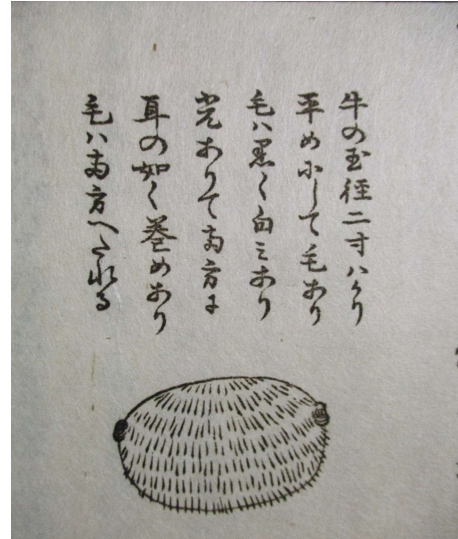 牛の玉径二寸ハかり
平め尓して毛あり
毛ハ黒く白ミあり
光ありて両方に
耳の如く巻めあり
毛ハ両方へたれる